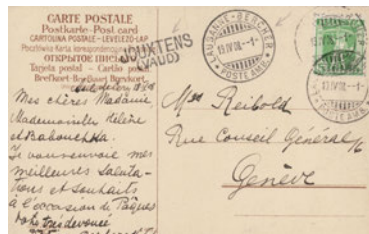 CARTE POSTALE
Postkarte - Post card
CARTOLINA POSTALE - LEVELEZŐ-LAP
ОТКРЫТОЕ ПИСЬМО
Tarjeta postal — Cartão postal
Brefkort - Brevkort
JOUXTENS
(VAUD)
LAUSANNE-BERCHER
POSTE AMB.
Mes chères Madame,
Mademoiselle Hélène
et Babouchka.
Je vous envoie mes
meilleures saluta-
tions et souhaits
à l'occasion de Pâques
Votre très dévoué
Reibold
Rue Conseil Général
Genève